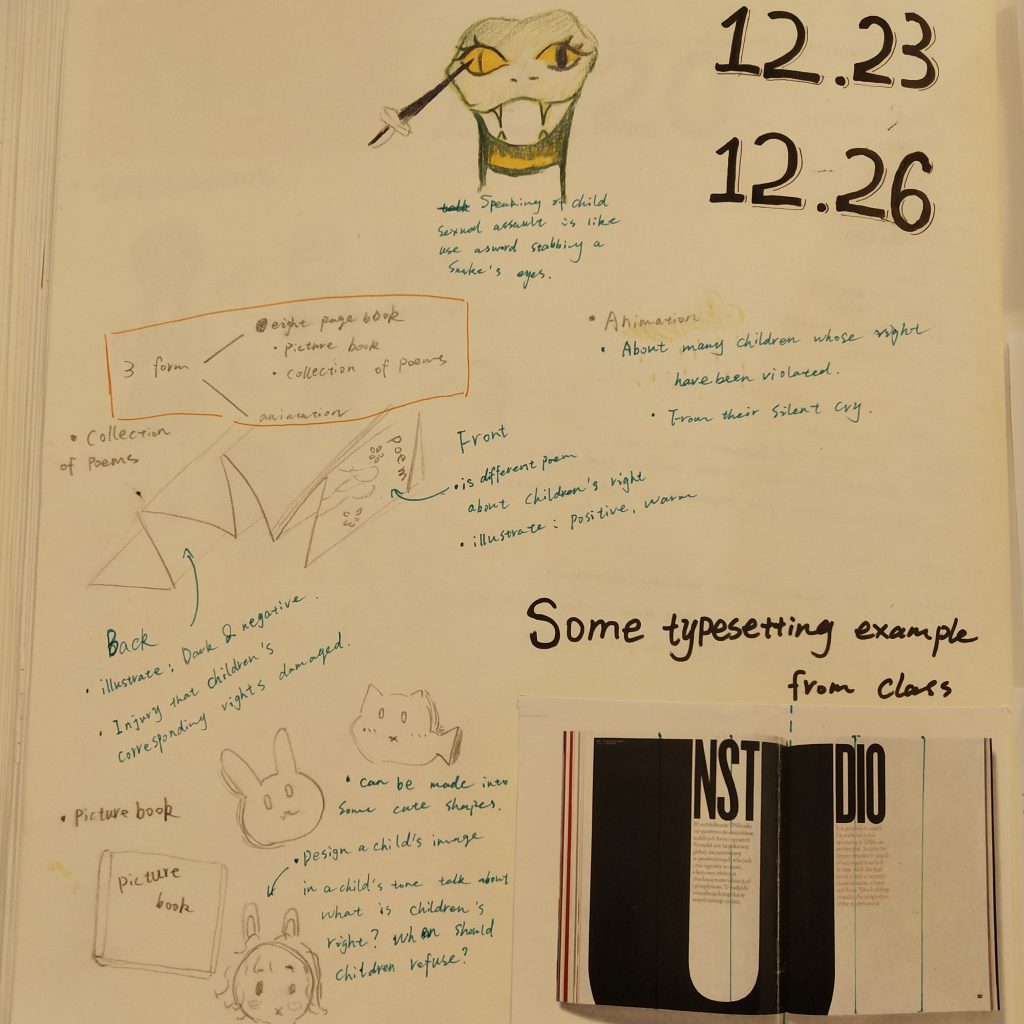 12.23
12.26
Speaking of child
sexual assault is like
use asword stabbing a
Snake's eyes.
3 form
eight page book
• picture book
• collection of poems
animation
• Animation
• About many children whose right
have been violated.
• From their silent cry.
• Collection
of poems
poem
Front
• is different poem
about children's right
• illustrate: positive, warm
Back
• illustrate: Dark & negative.
• Injury that children's
corresponding rights damaged.
Some typesetting example
from class
• can be made into
some cute shapes.
• Picture book
picture
book
• Design a child's image
in a child's tone talk about
what is children's
right? When should
children refuse?
UNST
UDIO